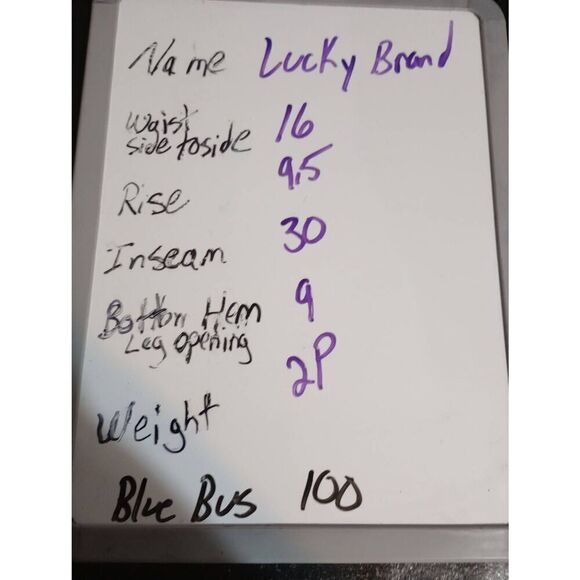 Name Lucky Brand
Waist 16
side to side
Rise 9.5
Inseam 30
Bottom Hem 9
Leg opening
Weight 2P
Blue Bus 100